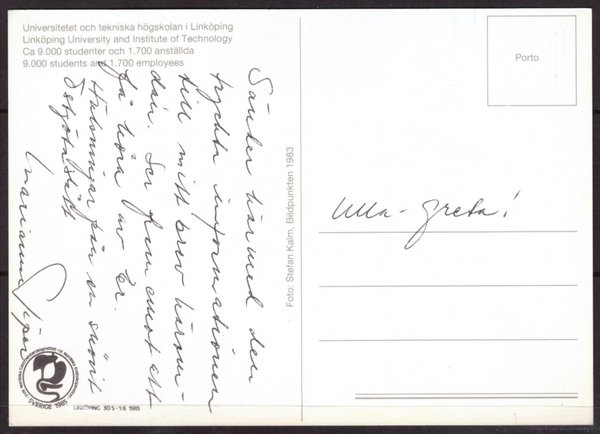 Universitetet och tekniska högskolan i Linköping
Linköping University and Institute of Technology
Ca 9.000 studenter och 1.700 anställda
9.000 students and 1.700 employees
Sänder härmed den
tryckta informationen
till mitt brev härom-
dan. Ser fram emot att
få höra av Er.
Hälsningar från en skönt
Östgötaslätt
Marianne
Foto: Stefan Kalm, Bildpunkten 1983
Porto
Ulla-Greta!
SVERIGE 1985
LINKÖPING 30 5 - 1 6 1985